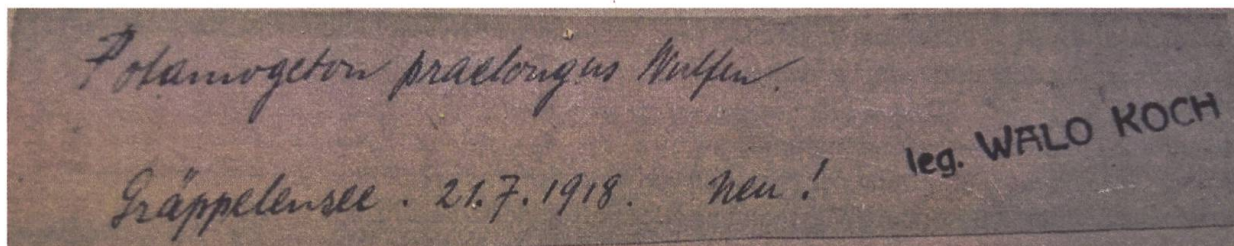 Potamogeton praelongus Wulfen.
Gräppelensee. 21.7.1918. Neu!
leg. WALO KOCH